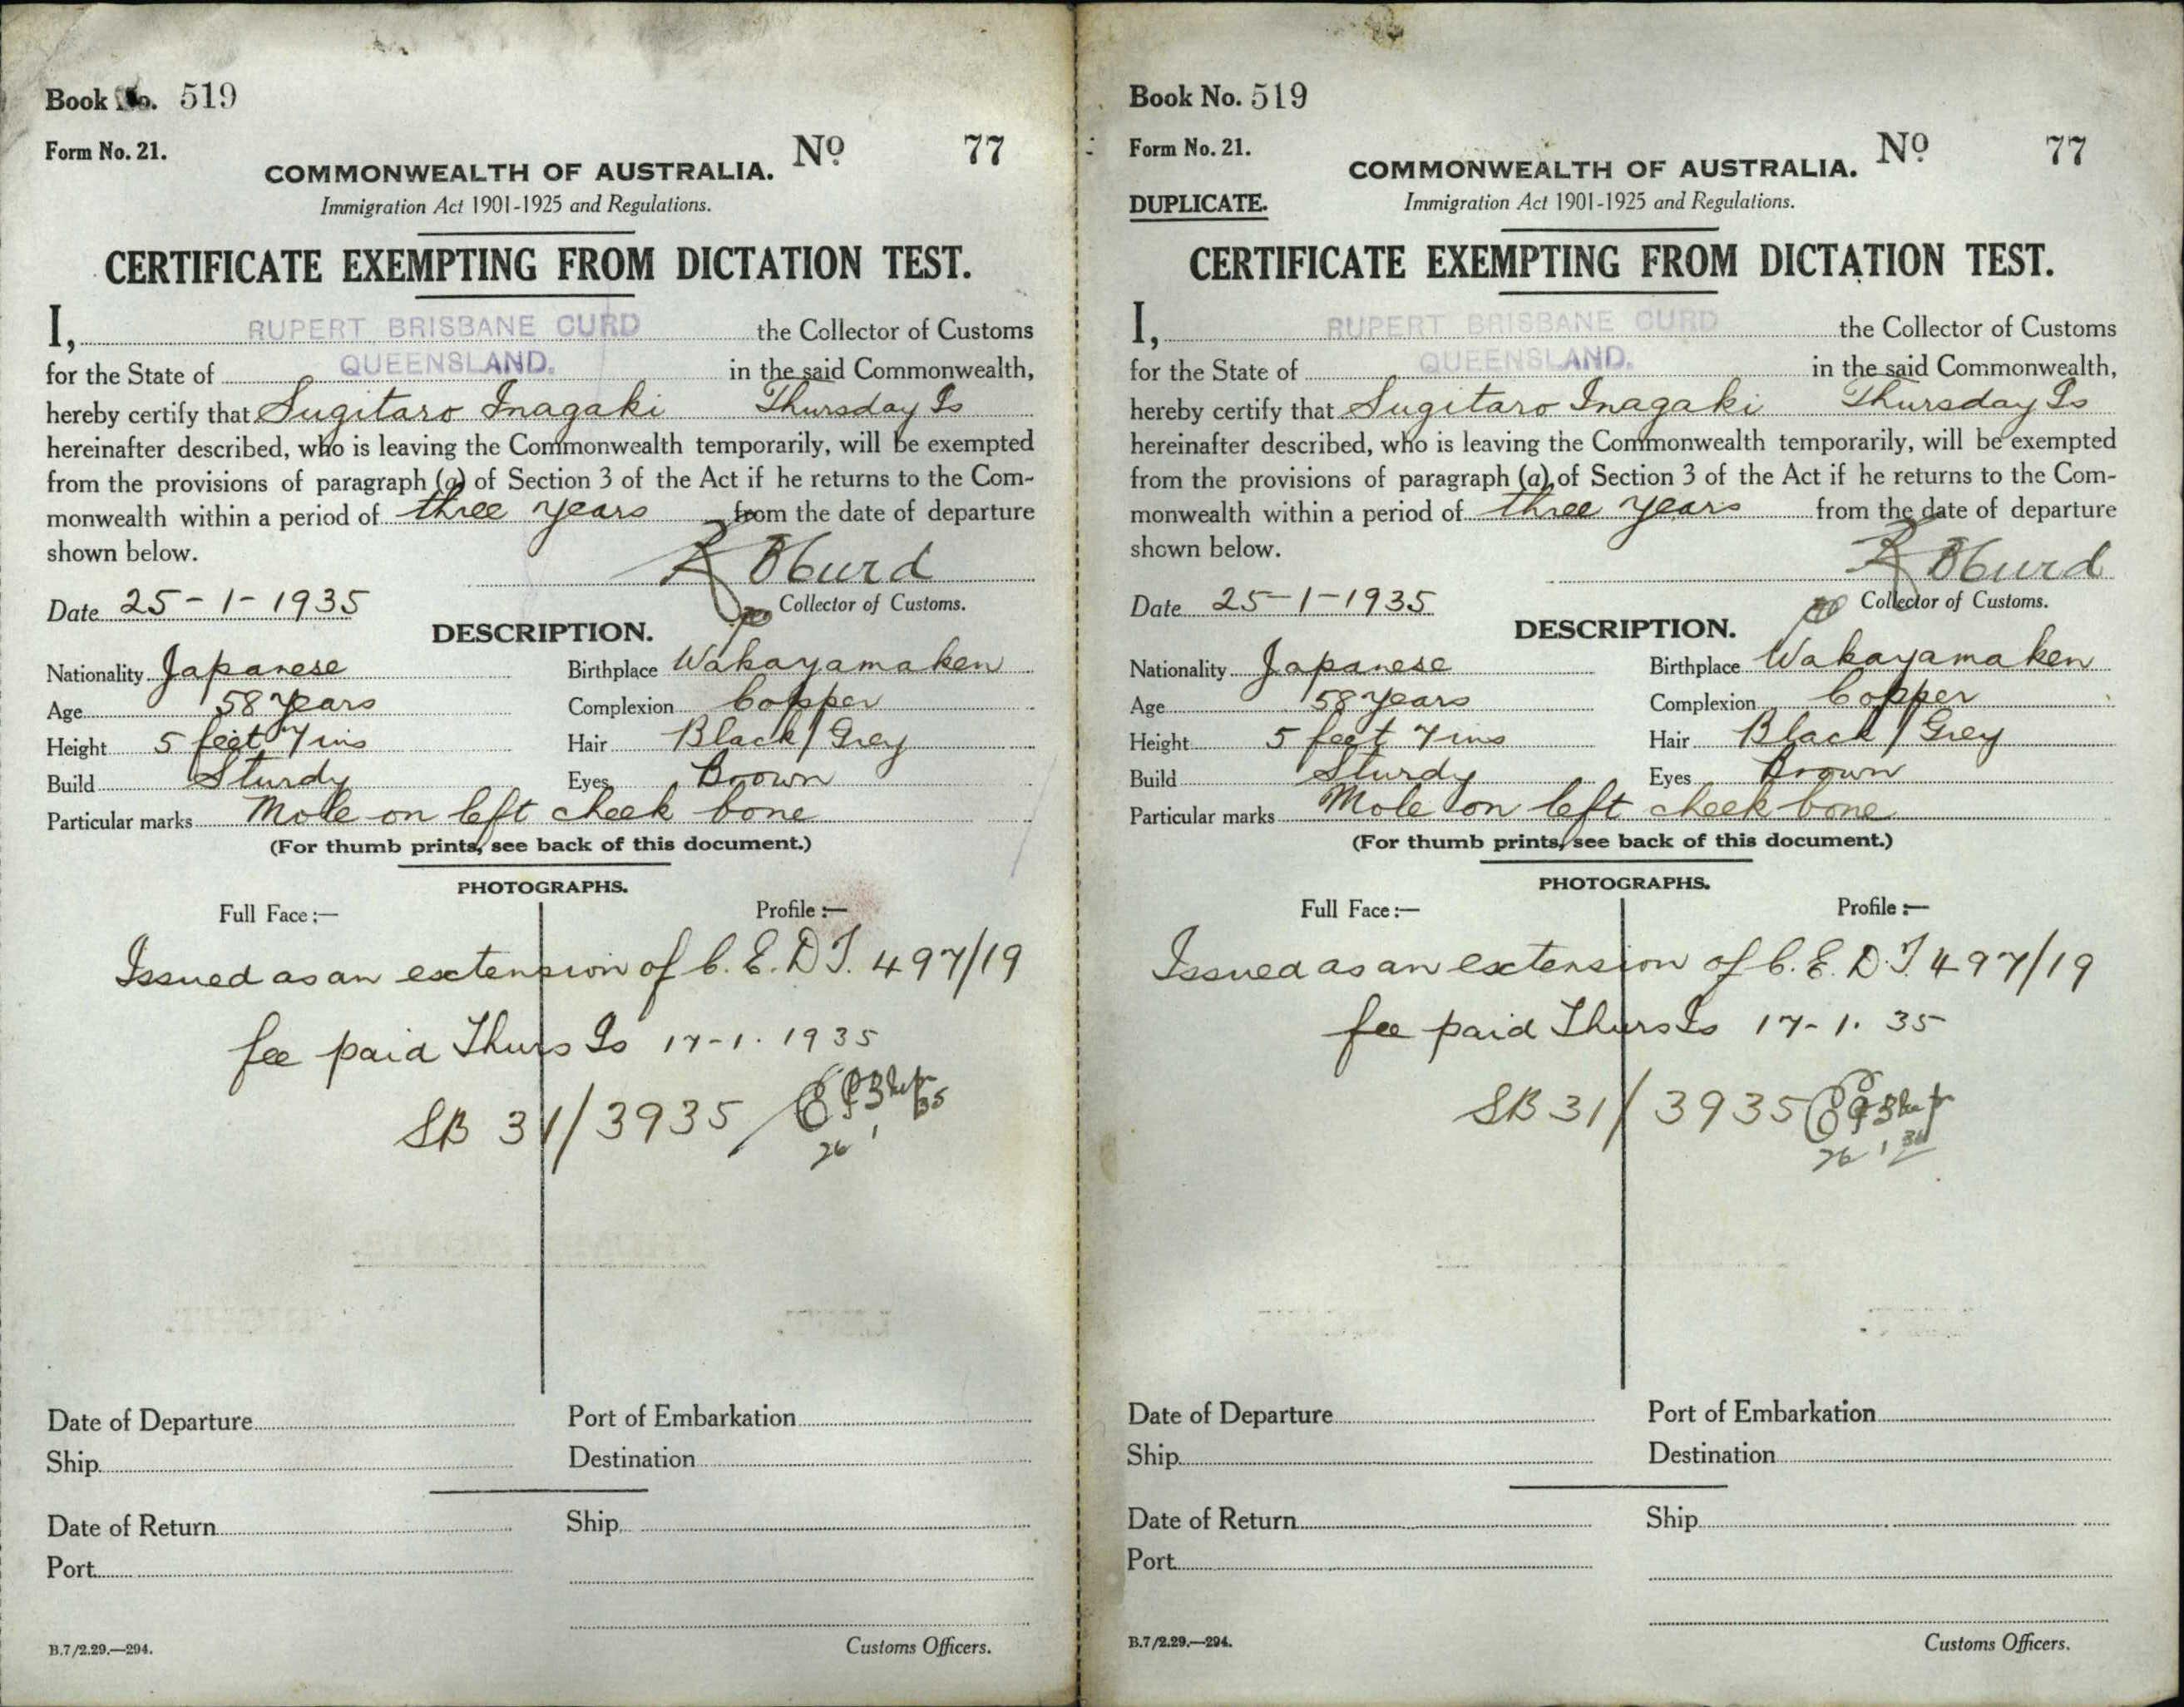 Book No. 519
Form No. 21.
COMMONWEALTH OF AUSTRALIA. Nº 77
Immigration Act 1901-1925 and Regulations.
CERTIFICATE EXEMPTING FROM DICTATION TEST.
I, RUPERT BRISBANE CURD the Collector of Customs
for the State of QUEENSLAND. in the said Commonwealth,
hereby certify that Sugitaro Inagaki Thursday Is
hereinafter described, who is leaving the Commonwealth temporarily, will be exempted
from the provisions of paragraph (a) of Section 3 of the Act if he returns to the Com-
monwealth within a period of three years from the date of departure
shown below.
R B Curd
Date 25-1-1935 Collector of Customs.
DESCRIPTION.
Nationality Japanese Birthplace Wakayamaken
Age 58 years Complexion Copper
Height 5 feet 7 ins Hair Black/Grey
Build Sturdy Eyes Brown
Particular marks Mole on left cheek bone
(For thumb prints, see back of this document.)
PHOTOGRAPHS.
Full Face:— Profile:—
Issued as an extension of C.E.D.T. 497/19
fee paid Thurs Is 17-1. 1935
SB 31/3935
26 1 35
Date of Departure Port of Embarkation
Ship Destination
Date of Return Ship
Port
B.7/2.29.—294. Customs Officers.
Book No. 519
Form No. 21.
COMMONWEALTH OF AUSTRALIA. Nº 77
DUPLICATE. Immigration Act 1901-1925 and Regulations.
CERTIFICATE EXEMPTING FROM DICTATION TEST.
I, RUPERT BRISBANE CURD the Collector of Customs
for the State of QUEENSLAND. in the said Commonwealth,
hereby certify that Sugitaro Inagaki Thursday Is
hereinafter described, who is leaving the Commonwealth temporarily, will be exempted
from the provisions of paragraph (a) of Section 3 of the Act if he returns to the Com-
monwealth within a period of three years from the date of departure
shown below.
R B Curd
Date 25-1-1935 Collector of Customs.
DESCRIPTION.
Nationality Japanese Birthplace Wakayamaken
Age 58 years Complexion Copper
Height 5 feet 7 ins Hair Black/Grey
Build Sturdy Eyes Brown
Particular marks Mole on left cheek bone
(For thumb prints, see back of this document.)
PHOTOGRAPHS.
Full Face:— Profile:—
Issued as an extension of C.E.D.T. 497/19
fee paid Thurs Is 17-1. 35
SB 31/3935
26 1
Date of Departure Port of Embarkation
Ship Destination
Date of Return Ship
Port
B.7/2.29.—294. Customs Officers.